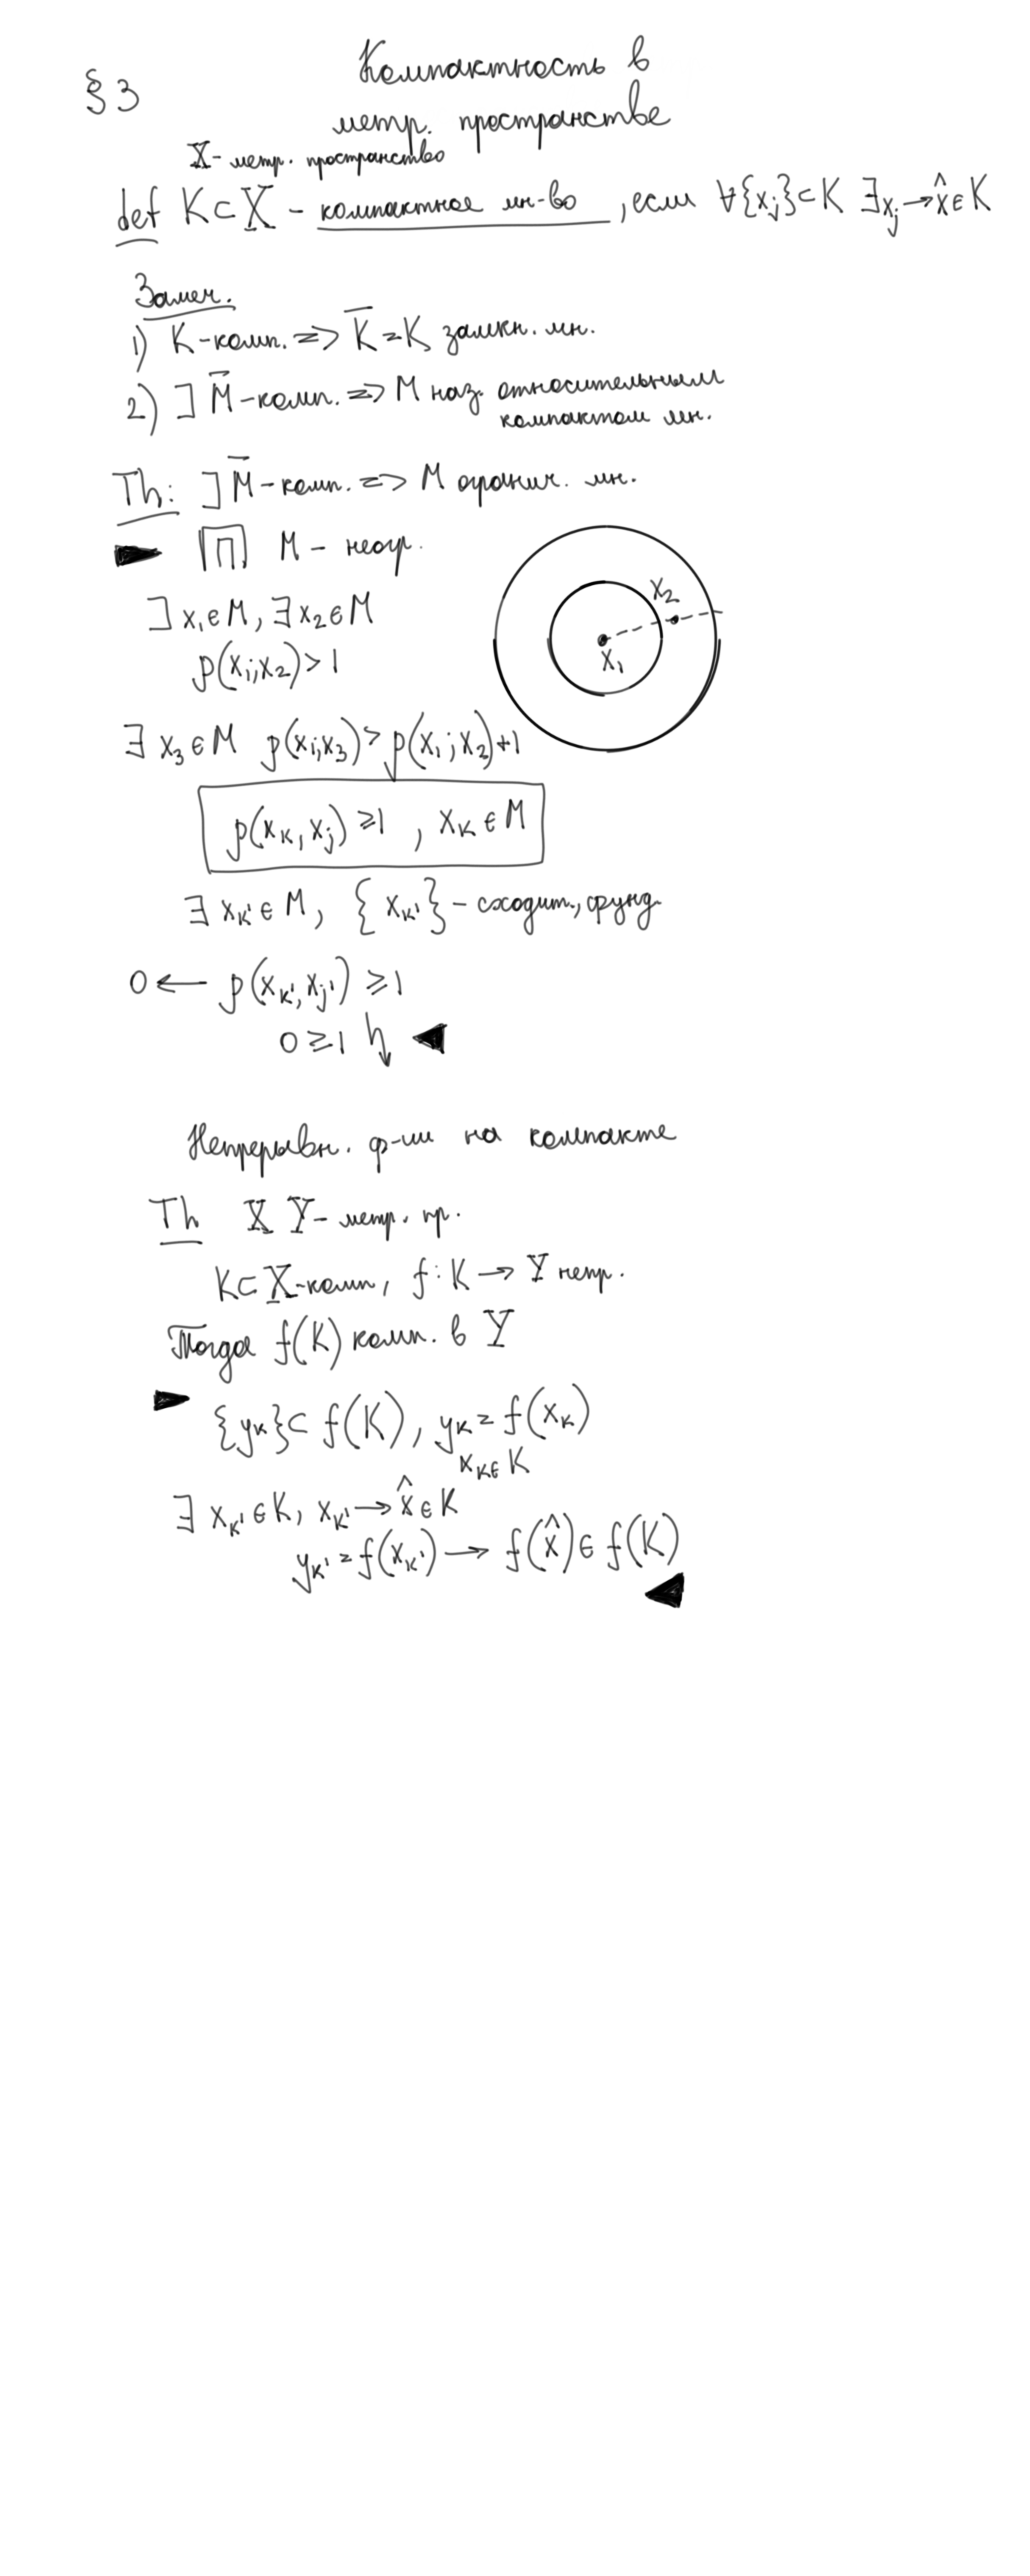 §3
Компактность в
метр. пространстве
X - метр. пространство
def K⊂X - компактное мн-во, если ∀{xⱼ}⊂K ∃xⱼ→x̂∈K
Замеч.
1) K-комп. => K̅=K замкн. мн.
2) ∃ M̅-комп. => M наз. относительным
компактом мн.
Th: ∃ M̅-комп. => M огранич. мн.
▶ П M - неогр.
∃ x₁∈M, ∃x₂∈M
ρ(x₁;x₂)>1
x₂
x₁
∃ x₃∈M ρ(x₁;x₃)>ρ(x₁;x₂)+1
ρ(xₖ,xⱼ)≥1, xₖ∈M
∃ xₖ'∈M, {xₖ'} - сходит., фунд.
0 ← ρ(xₖ',xⱼ')≥1
0≥1 ↯ ◀
Непрерывн. ф-ии на компакте
Th X Y - метр. пр.
K⊂X-комп, f:K→Y непр.
Тогда f(K) комп. в Y
▶ {yₖ}⊂f(K), yₖ=f(xₖ)
xₖ∈K
∃ xₖ'∈K, xₖ'→x̂∈K
yₖ'=f(xₖ')→f(x̂)∈f(K)
◀